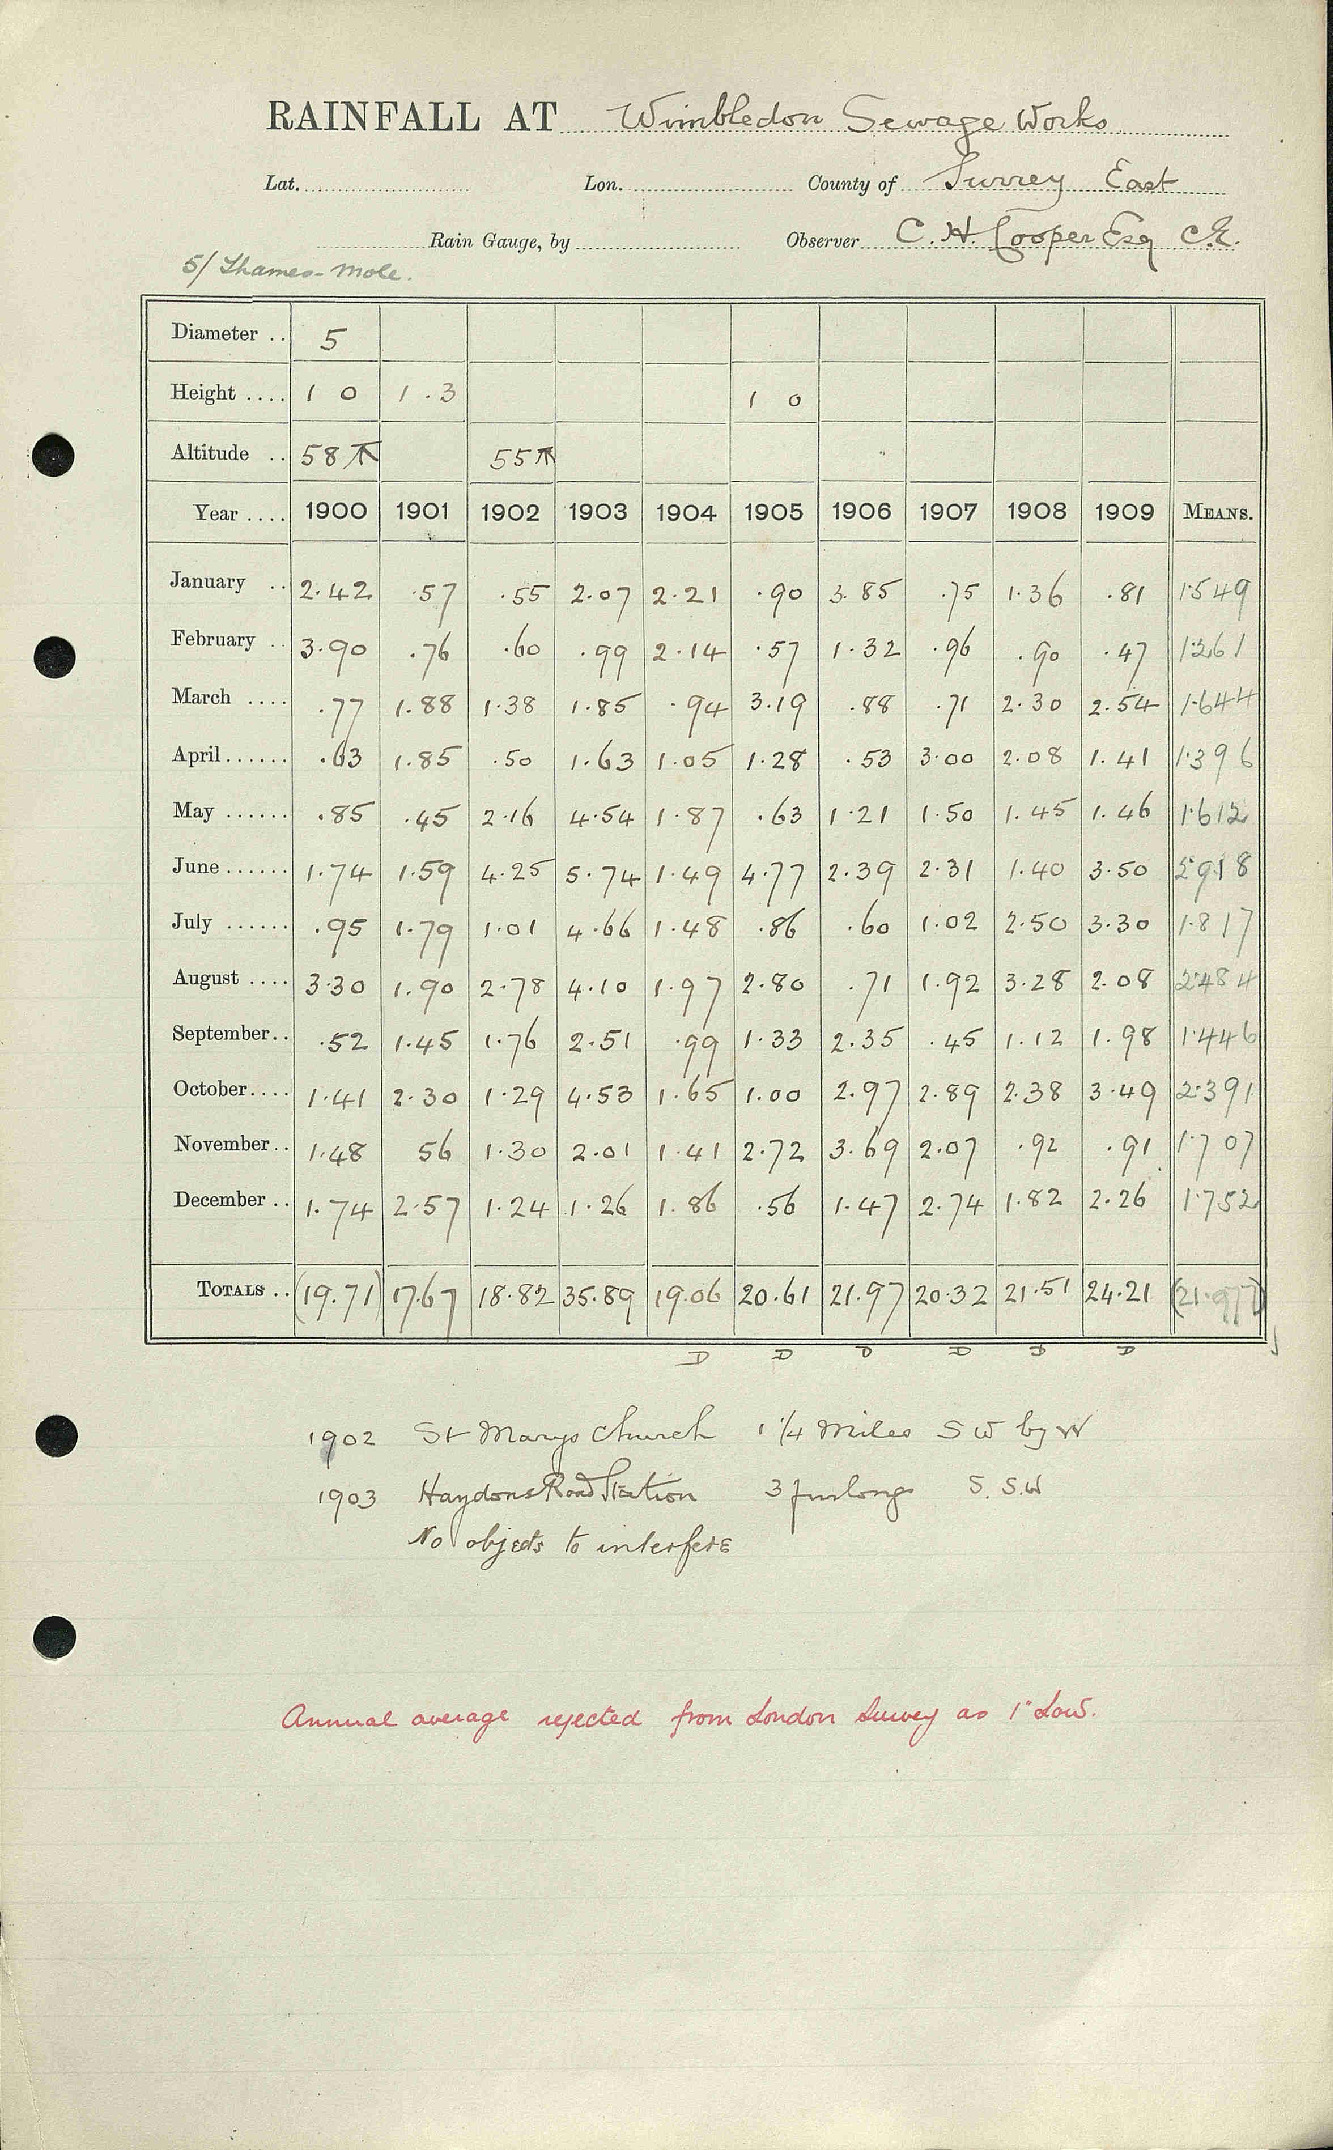 RAINFALL AT Wimbledon Sewage Works
Lat. Lon. County of Surrey East
Rain Gauge, by Observer C. H. Cooper Esq C.E.
5/ Thames-Mole.
Diameter .. 5
Height .... 1 0 1.3 1 0
Altitude .. 58 55
Year .... 1900 1901 1902 1903 1904 1905 1906 1907 1908 1909 MEANS.
January .. 2.42 .57 .55 2.07 2.21 .90 3.85 .75 1.36 .81 1.549
February .. 3.90 .76 .60 .99 2.14 .57 1.32 .96 .90 .47 1.261
March .... .77 1.88 1.38 1.85 .94 3.19 .88 .71 2.30 2.54 1.644
April ...... .63 1.85 .50 1.63 1.05 1.28 .53 3.00 2.08 1.41 1.396
May ...... .85 .45 2.16 4.54 1.87 .63 1.21 1.50 1.45 1.46 1.612
June ...... 1.74 1.59 4.25 5.74 1.49 4.77 2.39 2.31 1.40 3.50 2.918
July ...... .95 1.79 1.01 4.66 1.48 .86 .60 1.02 2.50 3.30 1.817
August .... 3.30 1.90 2.78 4.10 1.97 2.80 .71 1.92 3.28 2.08 2.484
September .. .52 1.45 1.76 2.51 .99 1.33 2.35 .45 1.12 1.98 1.446
October .... 1.41 2.30 1.29 4.53 1.65 1.00 2.97 2.89 2.38 3.49 2.391
November .. 1.48 56 1.30 2.01 1.41 2.72 3.69 2.07 .92 .91 1.707
December .. 1.74 2.57 1.24 1.26 1.86 .56 1.47 2.74 1.82 2.26 1.752
TOTALS .. (19.71) 17.67 18.82 35.89 19.06 20.61 21.97 20.32 21.51 24.21 (21.977)
D D D D D D
1902 St Marys Church 1 1/4 Miles S W by W
1903 Haydons Road Station 3 furlongs S. S.W
No objects to interfere
Annual average rejected from London Survey as 1" Low.